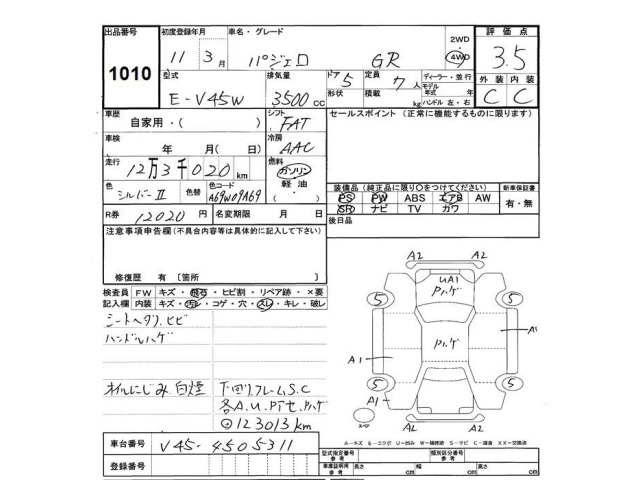 出品番号 1010
初度登録年月 11 3月
車名・グレード パジェロ GR
2WD
4WD
評価点 3.5
型式 E-V45W
排気量 3500 cc
ドア 5
形状
定員 7人
積載 kg
ディーラー・並行
モデル
年式 年
ハンドル 左・右
外装 内装
C C
車歴 自家用・( )
シフト FAT
セールスポイント (正常に機能するものに限ります)
車検 年 月(日)
冷房 AAC
走行 12万3千020km
燃料 ガソリン
軽油
色 シルバーII 色替
色コード A69W09A69
装備品 (純正品に限り○をつけてください)
新車保証書
PS PW ABS エアB AW
SR ナビ TV カワ
有・無
R券 12020円
名変期限 月 日
後日品
注意事項申告欄(不具合内容等は具体的に記入して下さい)
修復歴 有 [箇所 ]
検査員 FW キズ・飛石・ヒビ割・リペア跡・×要
記入欄 内装 キズ・汚レ・コゲ・穴・スレ・キレ・破レ
シートヘタリ、ヒビ
ハンドルハゲ
オイルにじみ 白煙
下回りフレームS.C
各A.U.
ハゲ
123013km
車台番号 V45-4505311
登録番号
A2 A2
UA1
ハゲ
5 5
ハゲ
A1
A1
5 5
A1
スペア
A2 A2
A-キズ E-エクボ U-凹み W-補修跡 S-サビ C-腐食 XX-交換済
型式指定番号
参考
類別区分番号
参考
車庫証明用
参考
長さ cm 幅 cm 高さ cm